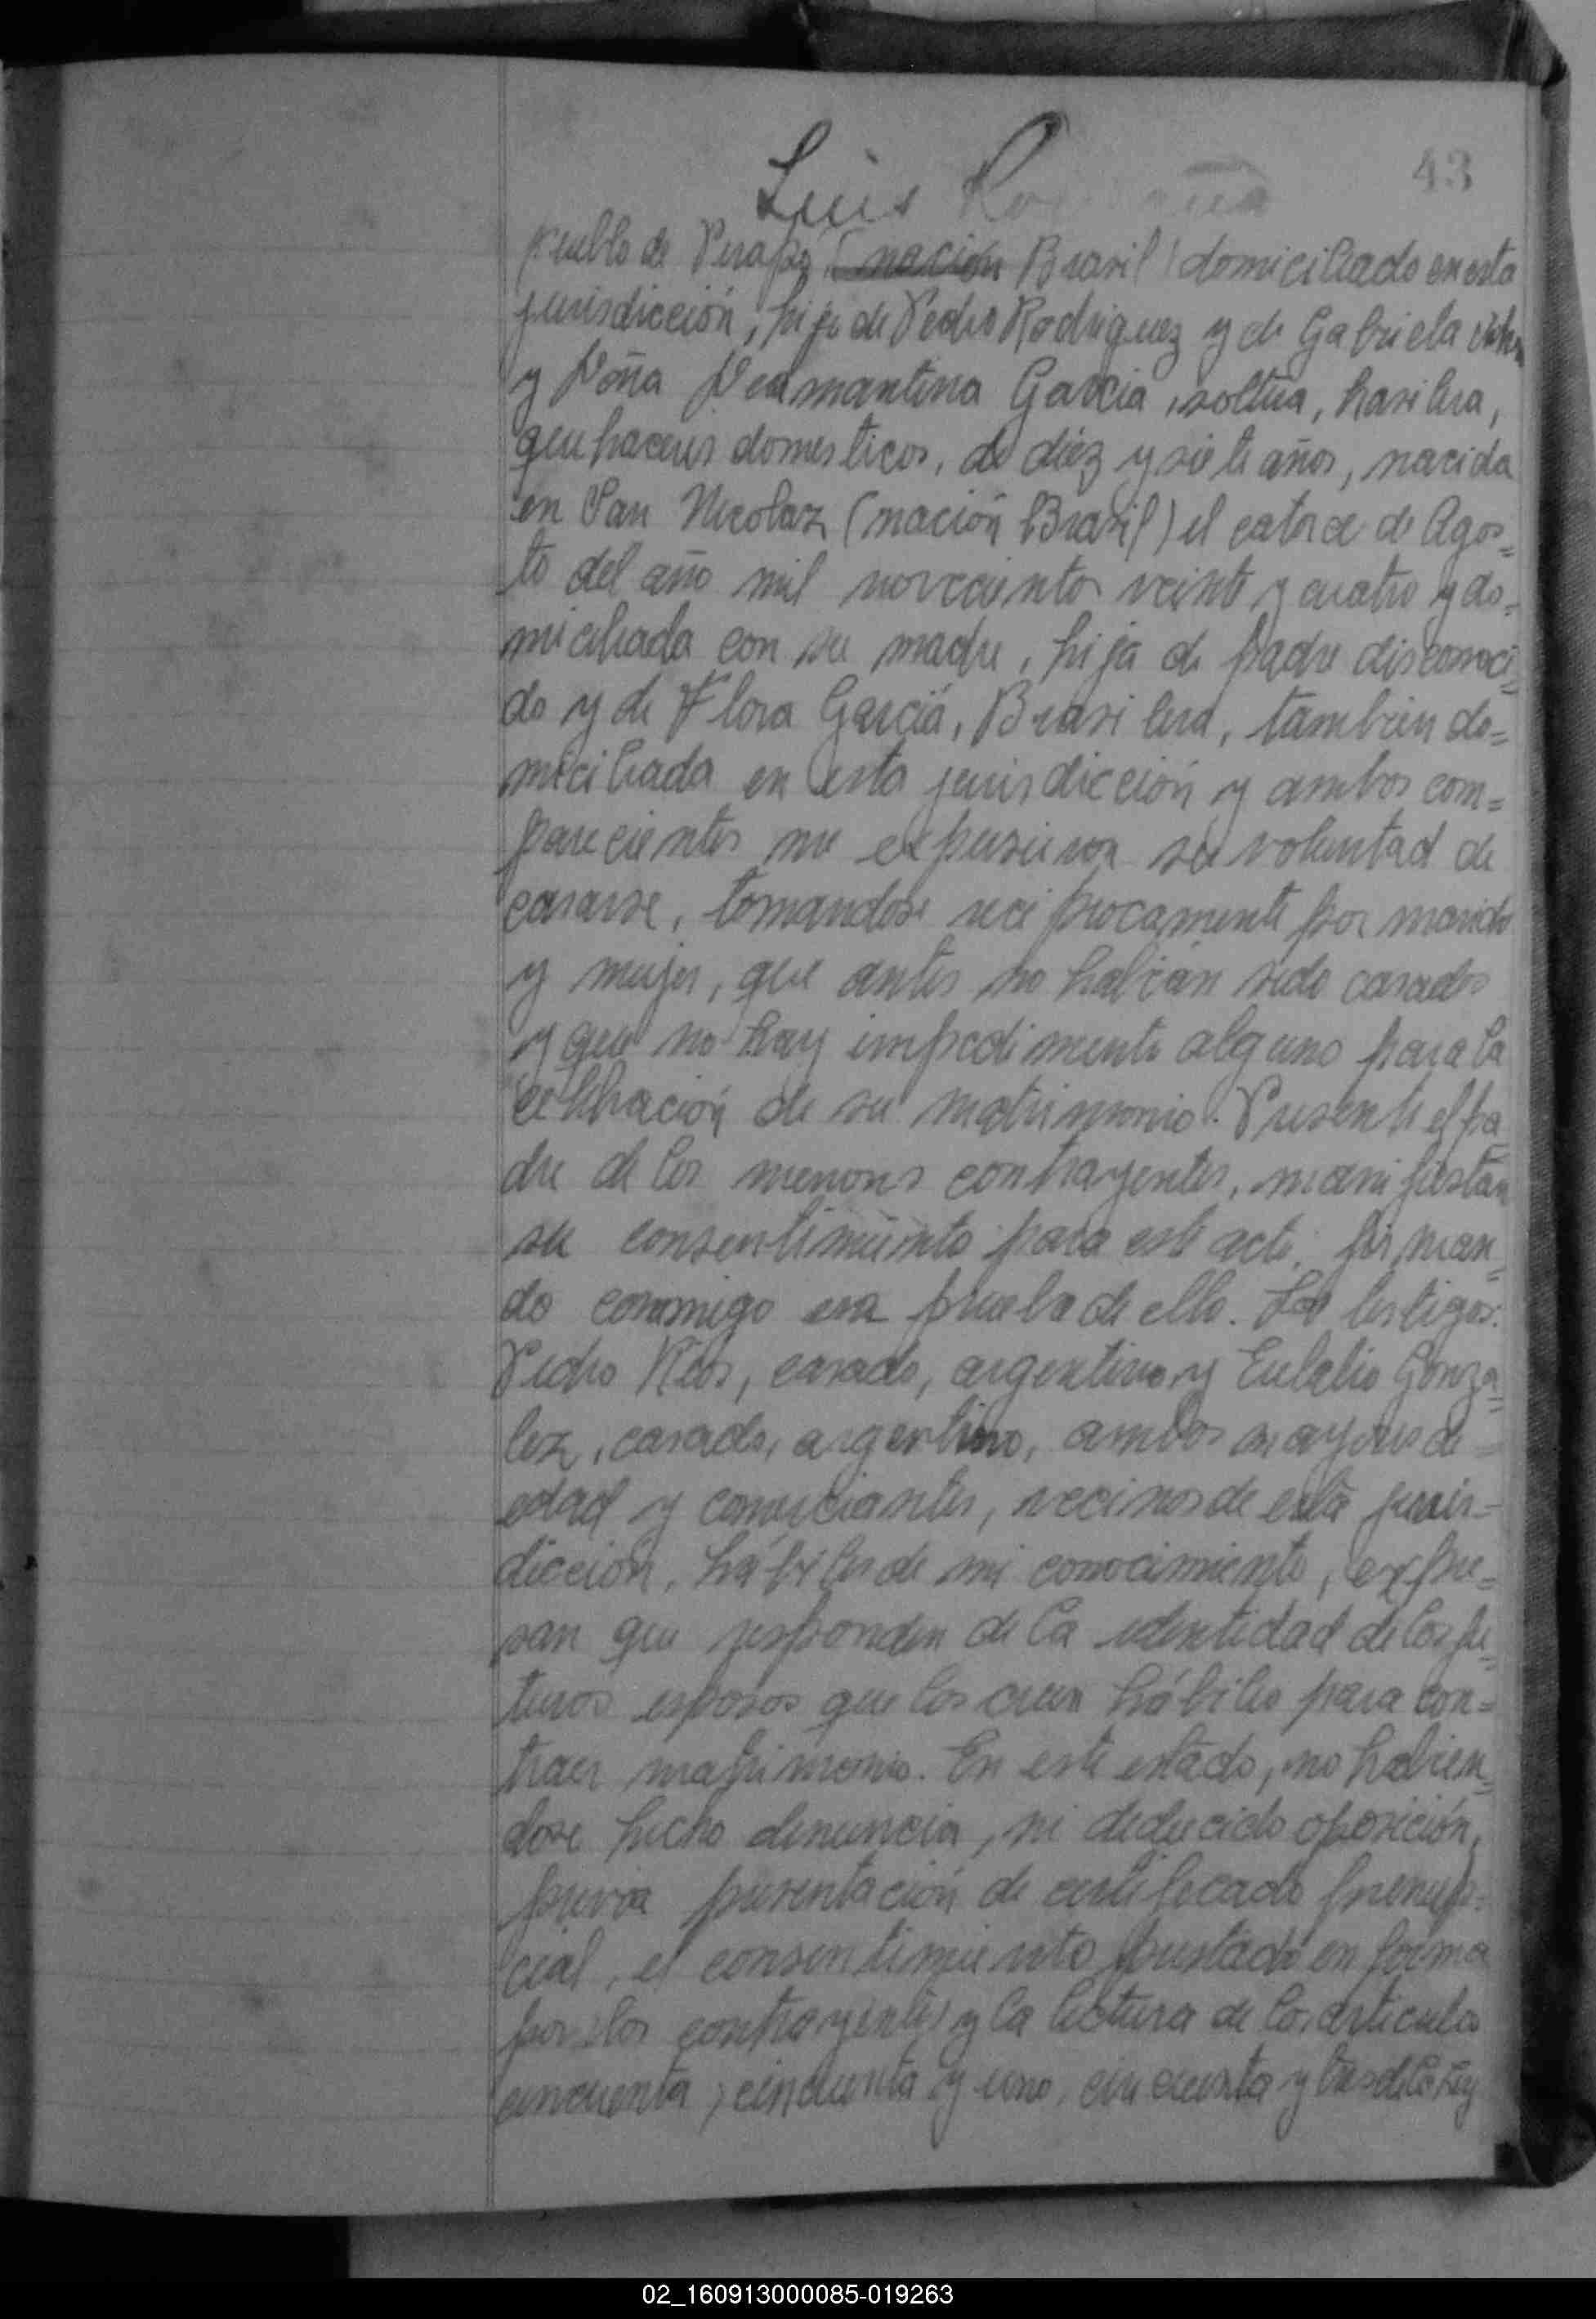 43
Luis
pueblo de Pirapó (nación Brasil) domiciliado en esta
jurisdicción, hijo de Pedro Rodriguez y de Gabriela
y Doña Deamantina Garcia, soltera, brasilera,
quehaceres domesticos, de diéz y siete años, nacida
en San Nicolaz (nación Brasil) el catorce de Agos=
to del año mil novecientos veinte y cuatro y do=
miciliada con su madre, hija de padre desconoci=
do y de Flora Garcia, Brasilera, tambien do=
miciliada en esta jurisdicción y ambos com=
parecientes me expusieron su voluntad de
casarse, tomandose reciprocamente por marido
y mujer, que antes no habían sido casados
y que no hay impedimento alguno para la
celebración de su matrimonio. Presente el pa=
dre de los menores contrayentes, manifiestan
su consentimiento para este acto, firman=
do conmigo en prueba de ello. Los testigos:
Pedro Rios, casado, argentino y Eulalio Gonza=
lez, casado, argentino, ambos mayores de
edad y comerciantes, vecinos de esta juris=
dicción, hábiles de mi conocimiento, expre=
san que responden de la identidad de los fu=
turos esposos que los creen hábiles para con=
traer matrimonio. En este estado, no habien=
dose hecho denuncia, ni deducido oposición,
previa presentación de certificado prenup=
cial, el consentimiento prestado en forma
por los contrayentes y la lectura de los articulos
cincuenta, cincuenta y uno, cincuenta y tres de la Ley
02_160913000085-019263